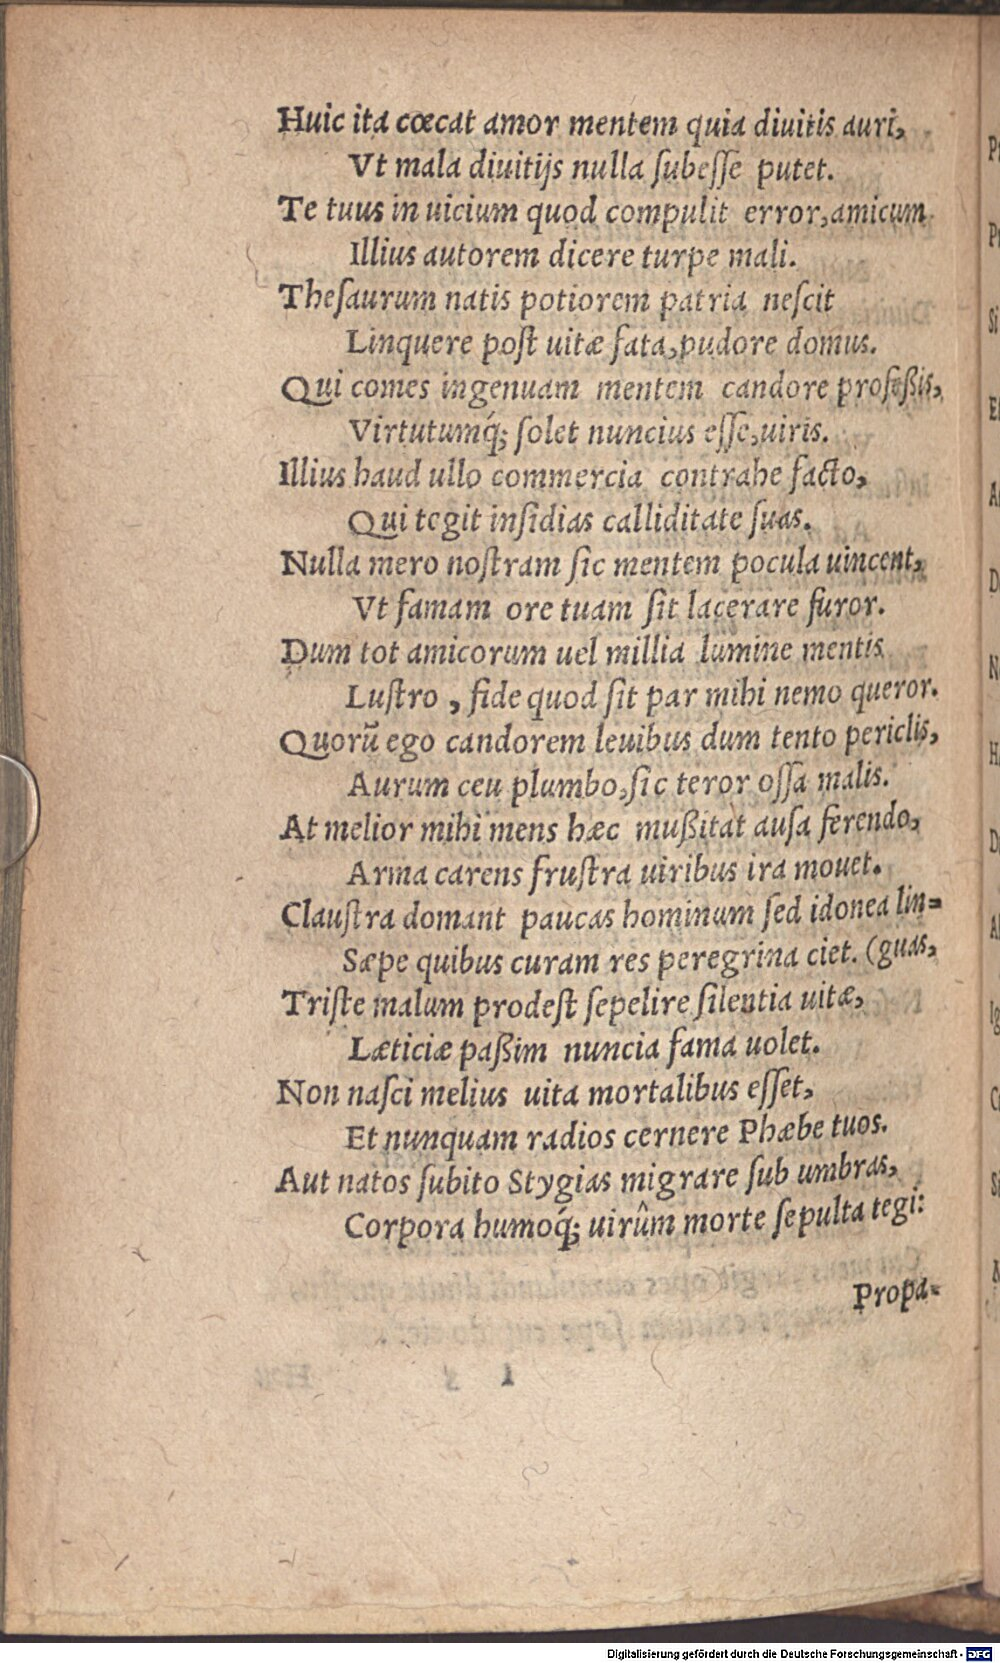 Huic ita cœcat amor mentem quia diuitis auri,
Vt mala diuitijs nulla ſubeſſe putet.
Te tuus in uicium quod compulit error, amicum
Illius autorem dicere turpe mali.
Theſaurum natis potiorem patria neſcit
Linquere poſt uitæ fata, pudore domus.
Qui comes ingenuam mentem candore profeßis,
Virtutumq́; ſolet nuncius eſſe, uiris.
Illius haud ullo commercia contrahe facto,
Qui tegit inſidias calliditate ſuas.
Nulla mero noſtram ſic mentem pocula uincent,
Vt famam ore tuam ſit lacerare furor.
Dum tot amicorum uel millia lumine mentis
Luſtro , fide quod ſit par mihi nemo queror.
Quorũ ego candorem leuibus dum tento periclis,
Aurum ceu plumbo, ſic teror oſſa malis.
At melior mihi mens hæc mußitat auſa ferendo,
Arma carens fruſtra uiribus ira mouet.
Clauſtra domant paucas hominum ſed idonea lin=
Sæpe quibus curam res peregrina ciet. (guas,
Triſte malum prodeſt ſepelire ſilentia uitæ,
Læticiæ paßim nuncia fama uolet.
Non naſci melius uita mortalibus eſſet,
Et nunquam radios cernere Phæbe tuos.
Aut natos ſubito Stygias migrare ſub umbras,
Corpora humoq́; uirûm morte ſepulta tegi:
Propa=
Digitalisierung gefördert durch die Deutsche Forschungsgemeinschaft - DFG